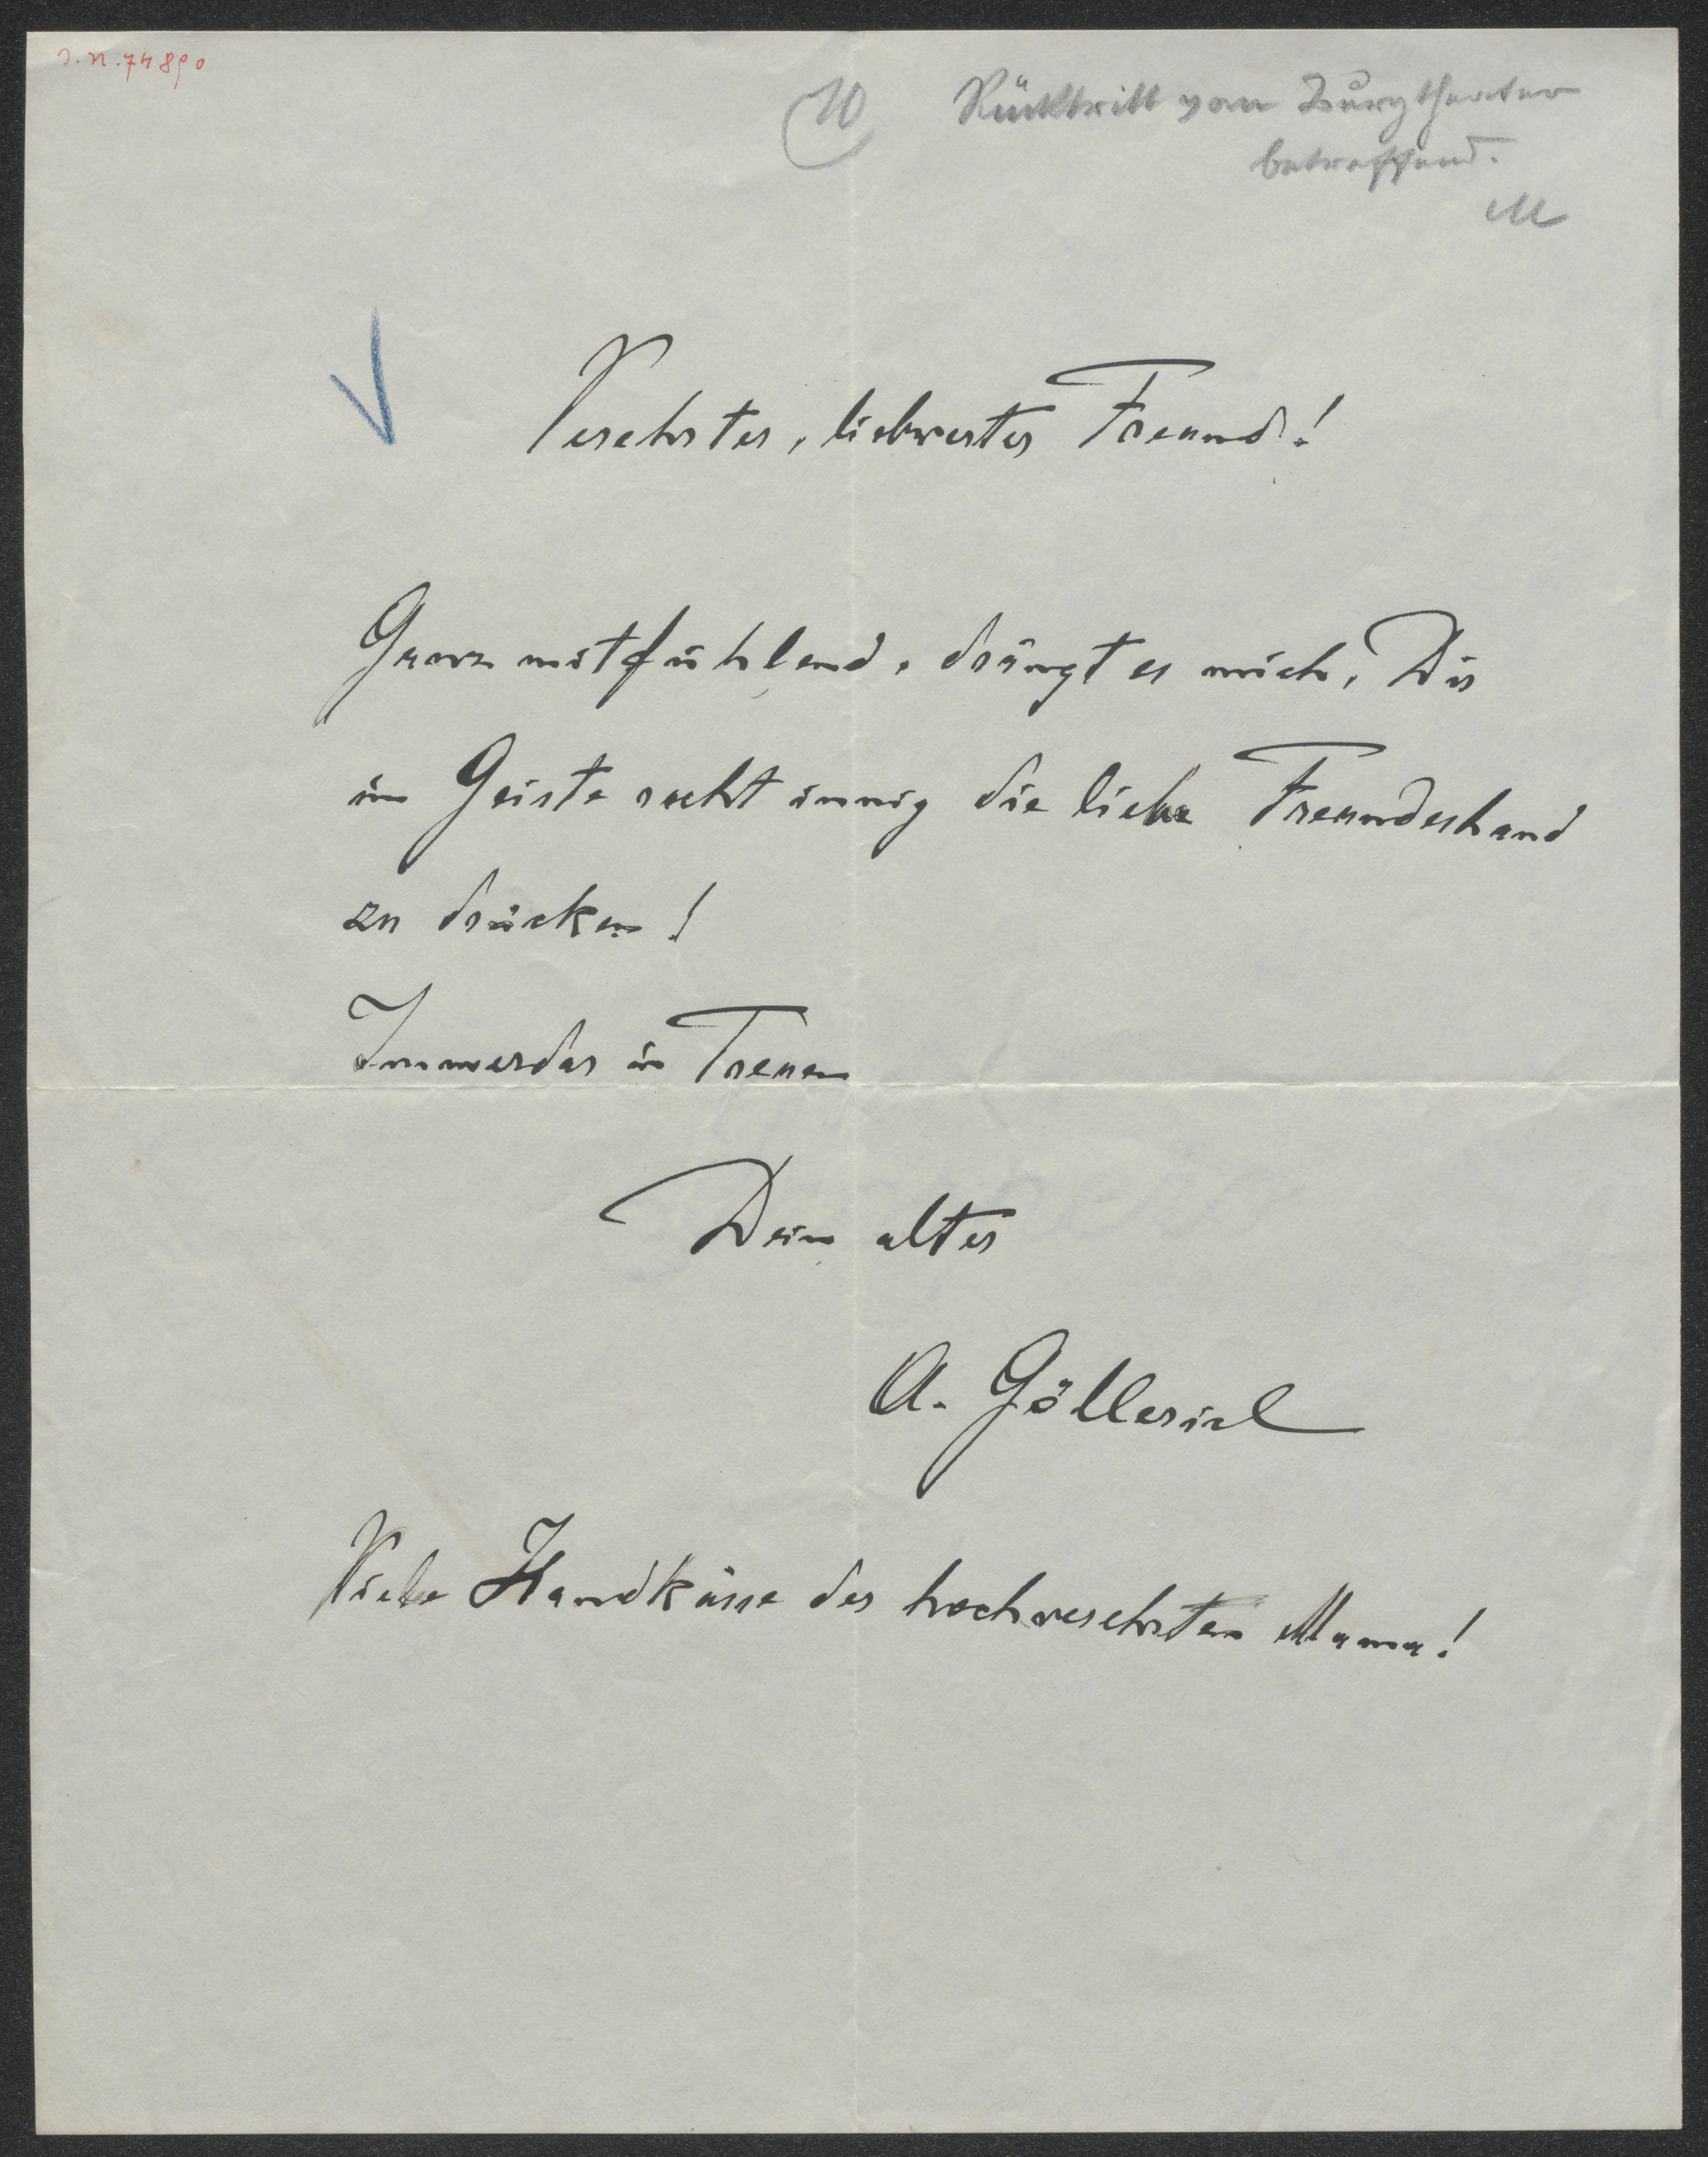 J. N. 74890
10
Rücktritt vom Burgtheater
betreffend.
M
Verehrter, liebwerter Freund!
Ganz mitfühlend, drängt es mich, Dir
im Geiste recht innig die liebe Freundeshand
zu drücken!
Immerdar in Treuen
Dein alter
A. Göllerich
Viele Handküsse der hochverehrten Mama!